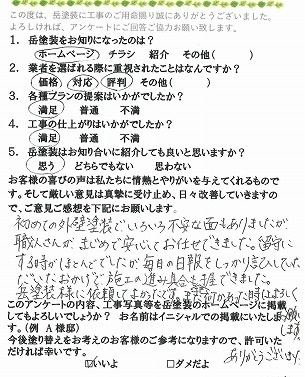 この度は、岳塗装に工事のご用命賜り誠にありがとうございました。
よろしければ、アンケートにご回答ご協力お願い致します。
1. 岳塗装をお知りになったのは？
ホームページ チラシ 紹介 その他( )
2. 業者を選ばれる際に重視されたことはなんですか？
価格 対応 評判 その他( )
3. 各種プランの提案はいかがでしたか？
満足 普通 不満
4. 工事の仕上がりはいかがでしたか？
満足 普通 不満
5. 岳塗装はお知り合いに紹介しても良いと思いますか？
思う どちらでもない 思わない
お客様の喜びの声は私たちに情熱とやりがいを与えてくれるものです。
そして厳しい意見は真摯に受け止め、日々改善していきますので、
ご意見ご感想を下記にお願いします。
初めての外壁塗装でいろいろ不安な面もありましたが
職人さんが、まじめで安心してお任せできました。留守に
する時がほとんどでしたが毎日の日報をしっかり記入していた
だいたおかげで施工の進み具合も把握できました。
岳塗装様に依頼してよかったです。又何かあった時はよろしく
お願いします。
ありがとうございました
このアンケートの内容、工事写真等を岳塗装のホームページに掲載
してもよろしいでしょうか？ お名前はイニシャルでの掲載にいたします。
(例 A様邸)
今後塗り替えをお考えのお客様のご参考になりますので、許可いた
だければ幸いです。
☑いいよ □ダメだよ